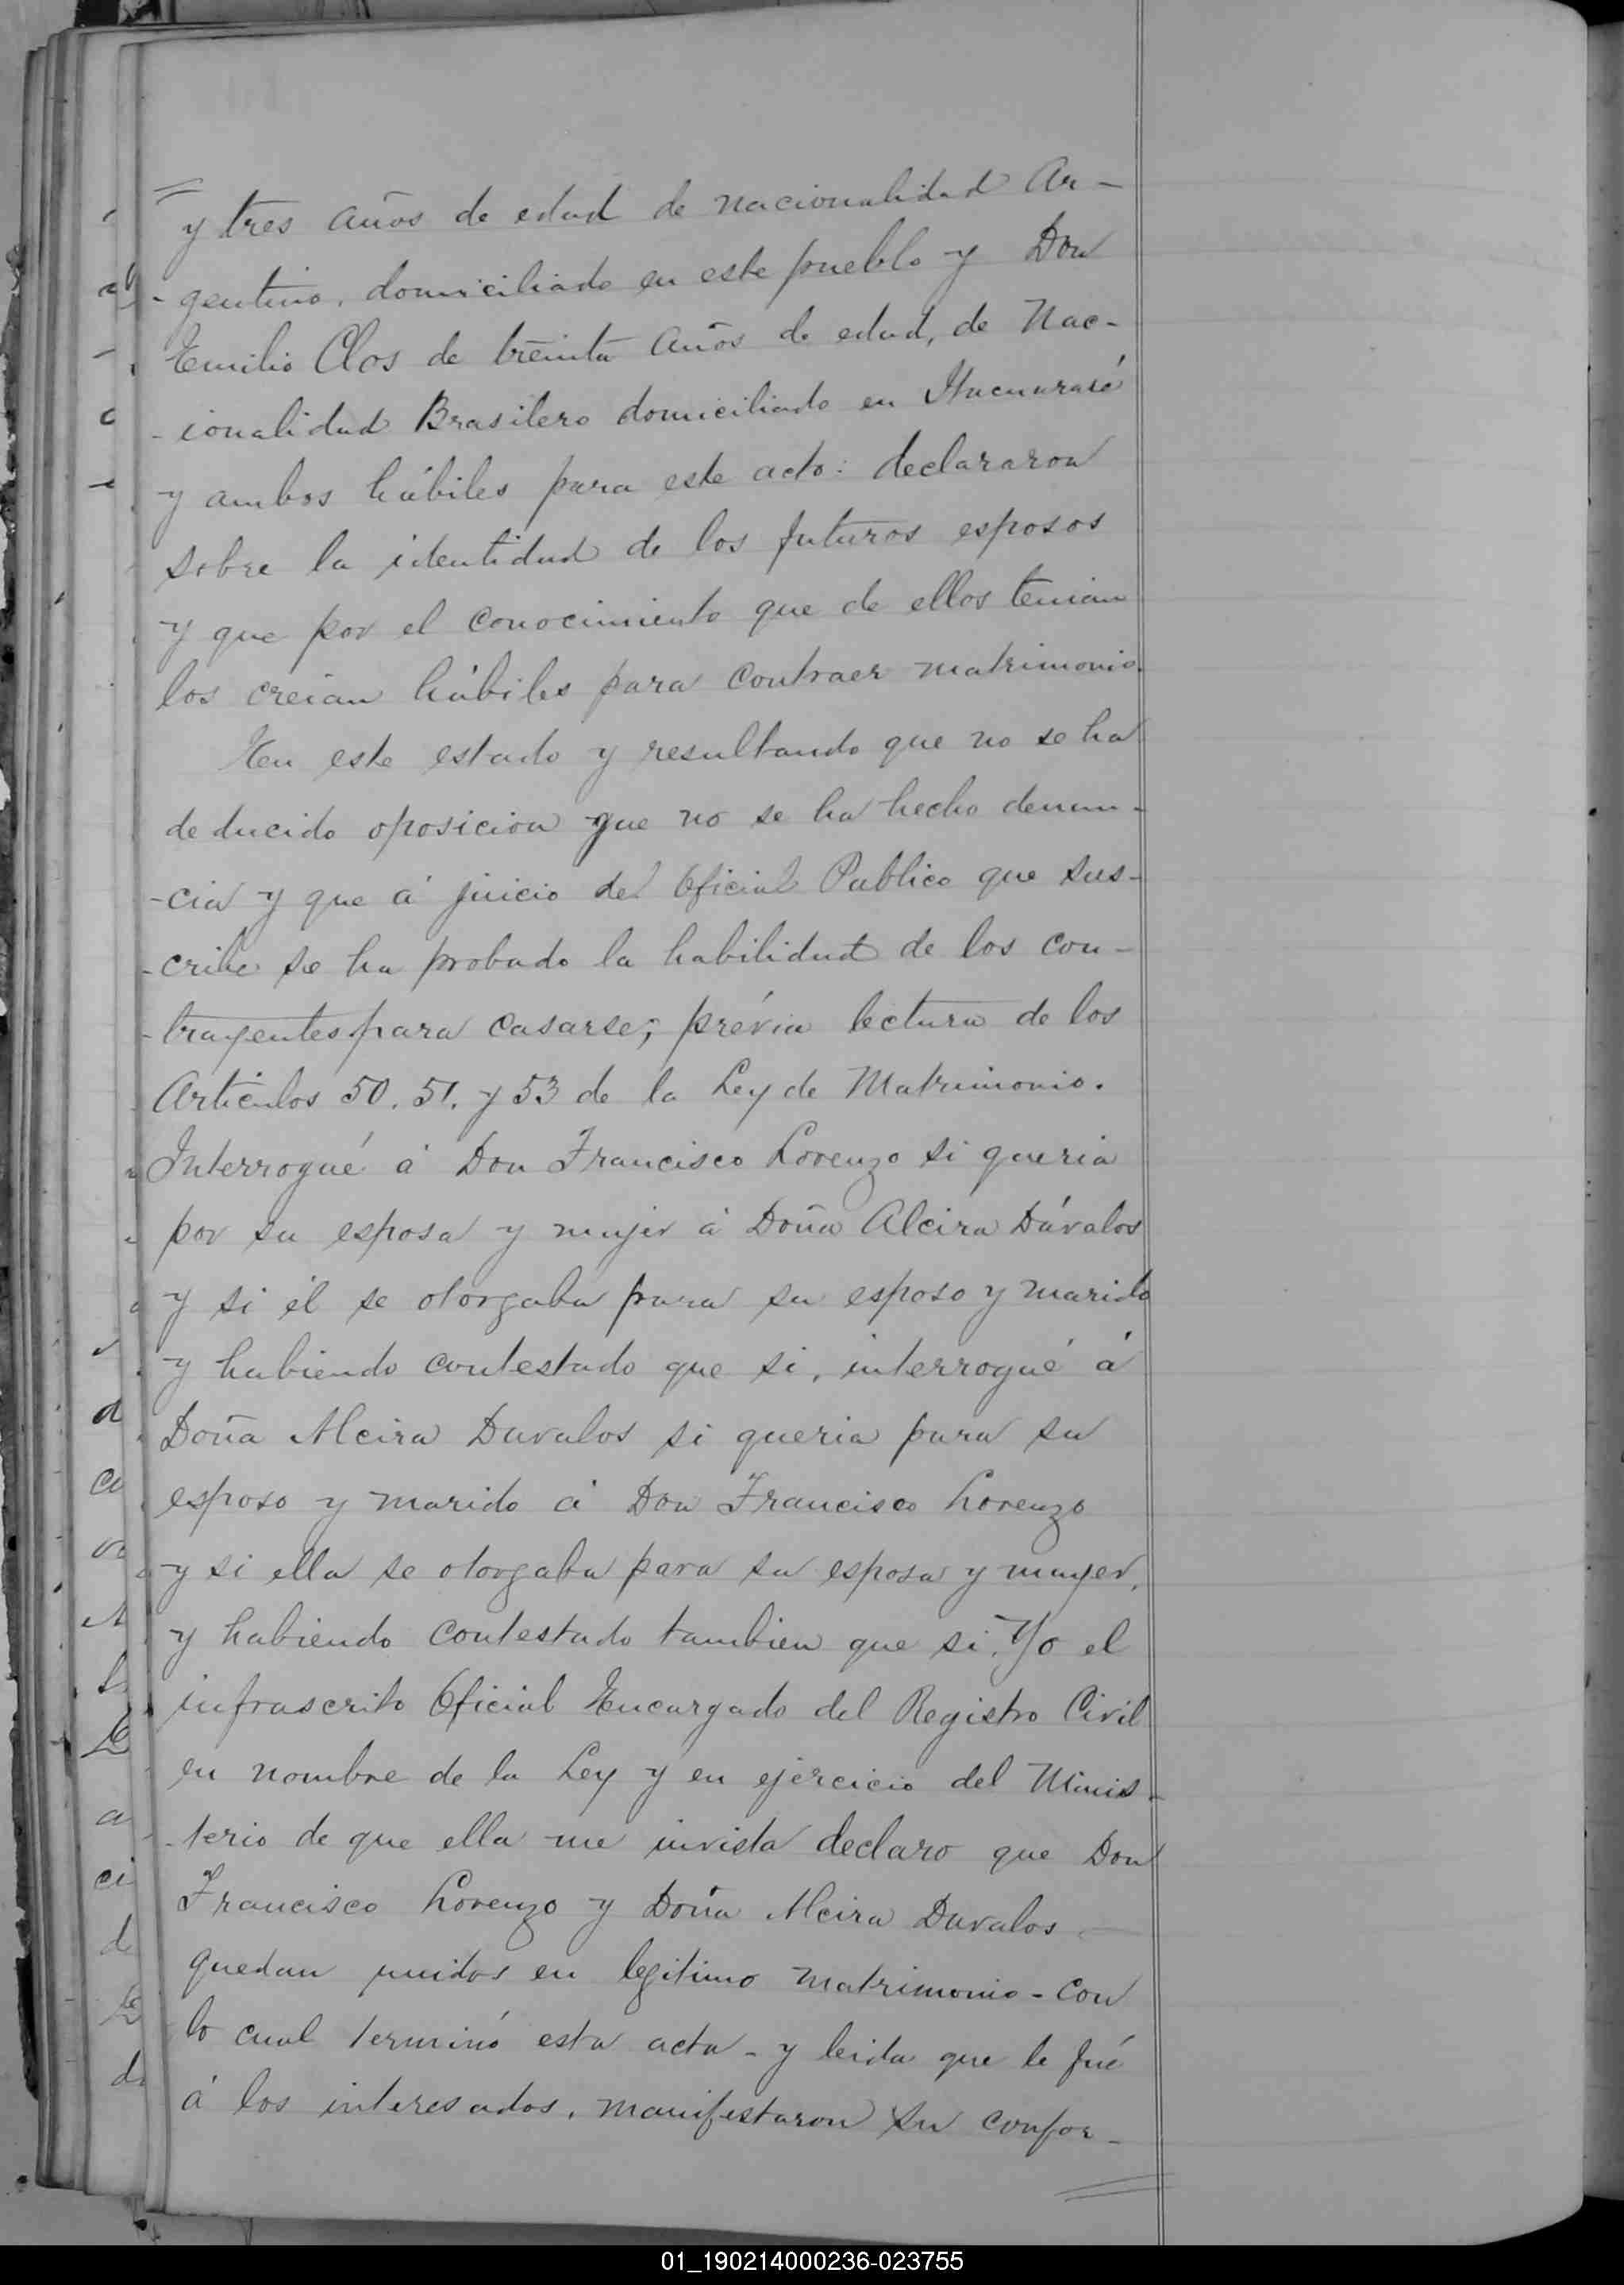 y tres años de edad de nacionalidad Ar-
-gentino, domiciliado en este pueblo y Don
Emilio Clos de treinta años de edad, de Nac-
-ionalidad Brasilero domiciliado en Itacuararé
y ambos hábiles para este acto: declararon
sobre la identidad de los futuros esposos
y que por el conocimiento que de ellos tenian
los creian hábiles para contraer matrimonio.
En este estado y resultando que no se ha
deducido oposicion que no se ha hecho denun-
-cia y que á juicio del Oficial Publico que sus-
-cribe se ha probado la habilidad de los con-
-trayentes para casarse; prévia lectura de los
Articulos 50. 51. y 53 de la Ley de Matrimonio.
Interrogué á Don Francisco Lorenzo si queria
por su esposa y mujer á Doña Alcira Dávalos
y si él se otorgaba para su esposo y marido
y habiendo contestado que si, interrogué á
Doña Alcira Davalos si queria para su
esposo y marido á Don Francisco Lorenzo
y si ella se otorgaba para su esposa y muyer,
y habiendo contestado tambien que si. Yo el
infrascrito Oficial Encargado del Registro Civil
en nombre de la Ley y en ejercicio del Minis-
-terio de que ella me invista declaro que Don
Francisco Lorenzo y Doña Alcira Davalos -
quedan unidos en legitimo matrimonio - con
lo cual terminó esta acta - y leida que le fué
á los interesados, manifestaron su confor-
01_190214000236-023755